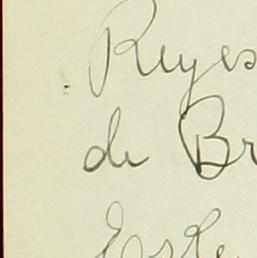 Reyes
de Br
Este